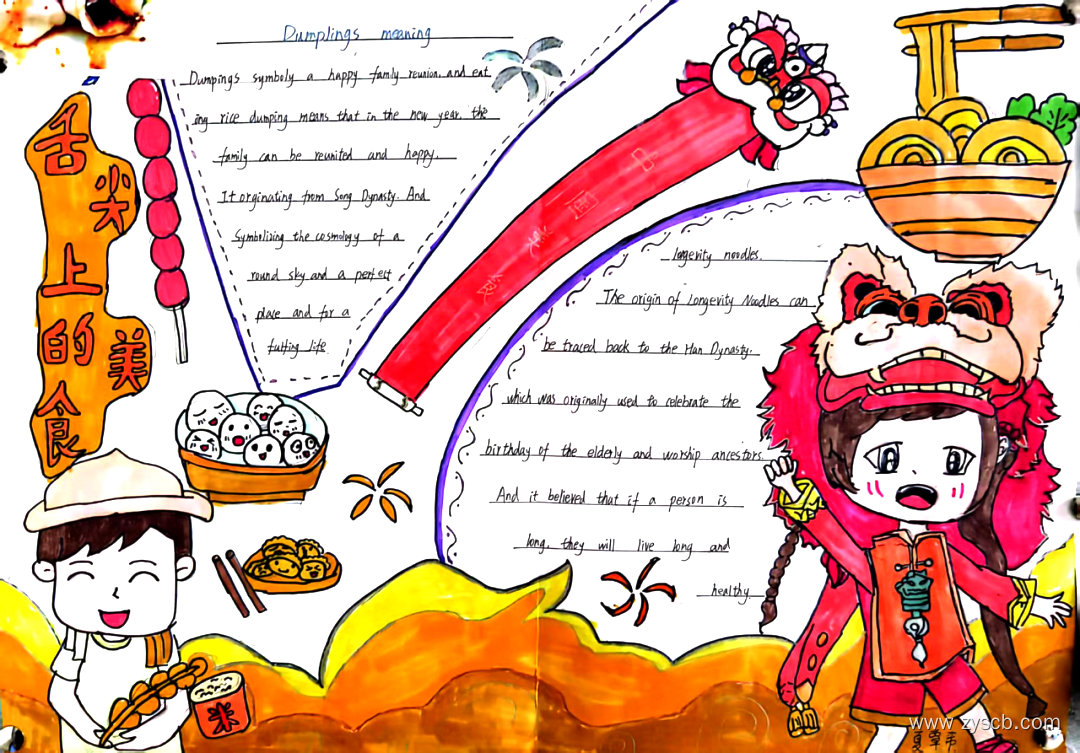 舌尖上的美食
Dumplings meaning
Dumpings symboly a happy family reunion, and eat
ing rice dumping means that in the new year, the
family can be reunited and happy.
It orginating from Song Dynasty. And
Symbolizing the cosmology of a
round sky and a perfect
place and for a
fulfing life
中国美食
longevity noodles.
The origin of Longevity Noodles can
be traced back to the Han Dynasty.
which was originally used to celebrate the
birthday of the elderly and worship ancestors.
And it believed that if a person is
long, they will live long and
healthy.
米
www.zyscb.com